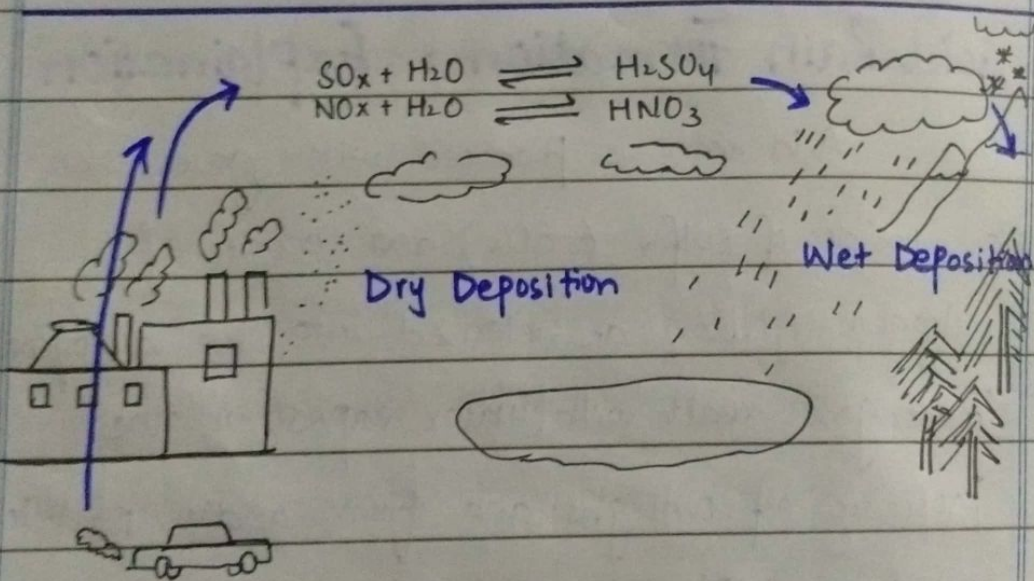 SOx + H2O ⇌ H2SO4
NOx + H2O ⇌ HNO3
Wet Deposition
Dry Deposition